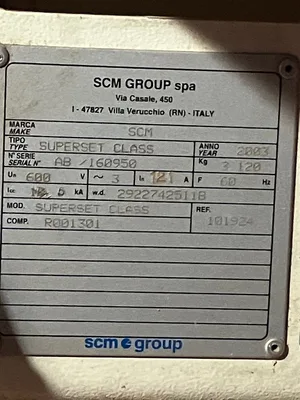 SCM GROUP spa
Via Casale, 450
I - 47827 Villa Verucchio (RN) - ITALY
MARCA MAKE SCM
TIPO TYPE SUPERSET CLASS ANNO YEAR 2003
N° SERIE SERIAL N° AB /160950 Kg 3 120
Un 600 V ~ 3 In 121 A F 60 Hz
Icc kA w.d. 2922742511B
MOD. SUPERSET CLASS REF. 101924
COMP. R001301
scm group